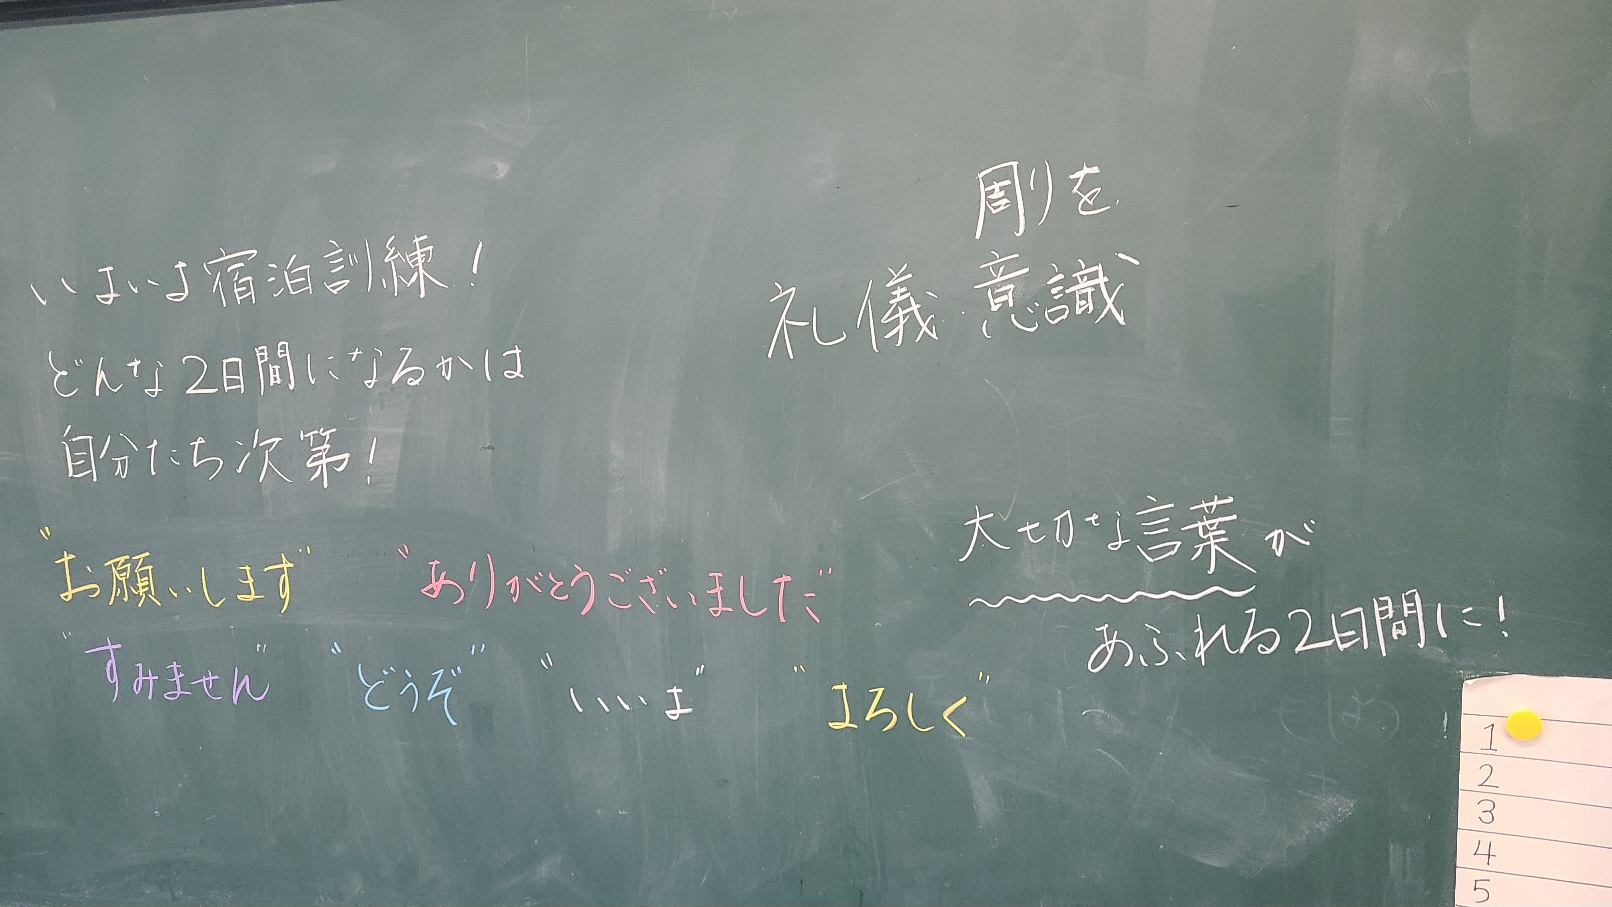 いよいよ宿泊訓練！
どんな2日間になるかは
自分たち次第！
"お願いします" "ありがとうございました"
"すみません" "どうぞ" "いいよ" "よろしく"
周りを
礼儀 意識
大切な言葉が
あふれる2日間に！
1
2
3
4
5